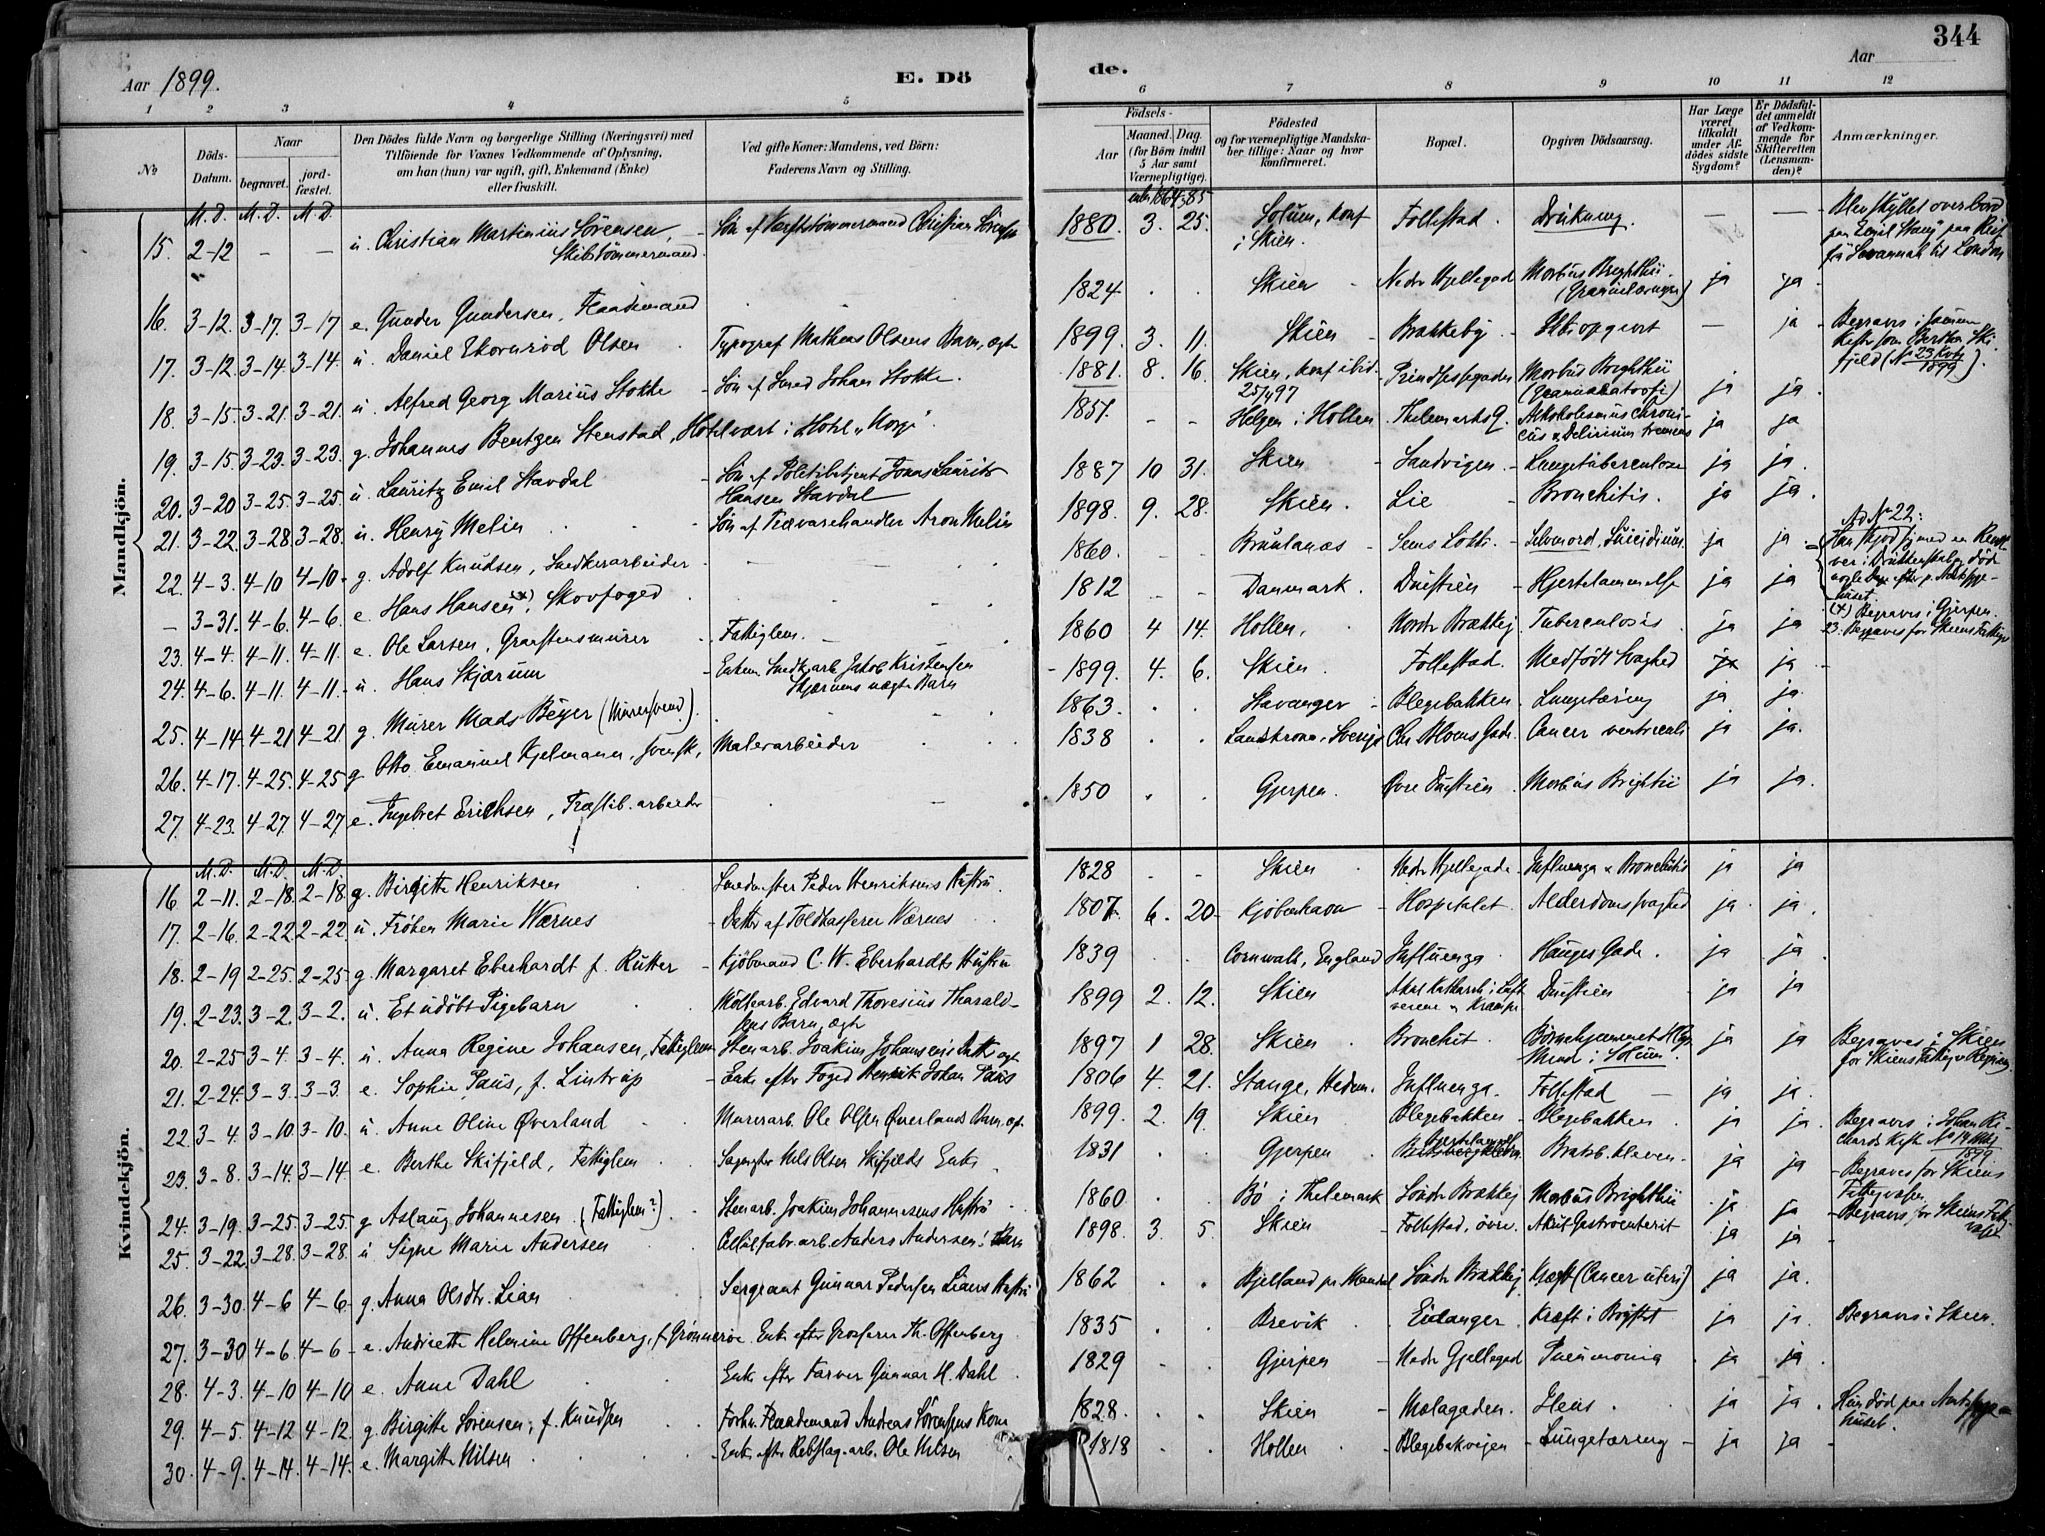 344
Aar 1899.
E. Dö
de.
Aar
1 2 3 4 5
6 7 8 9 10 11 12
№
Döds-Datum.
Naar
begravet.
jord-fæstet.
Den Dödes fulde Navn og borgerlige Stilling (Næringsvei) med
Tilföiende for Voxnes Vedkommende af Oplysning,
om han (hun) var ugift, gift, Enkemand (Enke)
eller fraskilt.
Ved gifte Koner: Mandens, ved Börn:
Faderens Navn og Stilling.
Födsels-
Aar
Maaned. Dag.
(for Börn indtil
5 Aar samt
Værnepligtige).
Födested
og for værnepligtige Mandska-
ber tillige: Naar og hvor
konfirmeret.
Bopæl.
Opgiven Dödsaarsag.
Har Læge
været
tilkaldt
under Af-
dödes sidste
Sygdom?
Er Dödsfal-
det anmeldt
af Vedkom-
mende for
Skifteretten
(Lensman-
den)?
Anmærkninger.
Mandkjön.
M. D. M. D. M. D.
15. 2-12 — — u. Christian Martinius Sörensen, Skibstömmermand. Sön af Værftstömmermand Christian Sörensen 1880. 3. 25. Solum, konf i Skien. Follestad. Drukning. — — Blev skyllet overbord paa "Emil Stang" paa Reise fra Savannah til London
16. 3-12. 3-17. 3-17 e. Gunder Gundersen, Flaademand 1824. Skien Nedr Hjellegad Morbus Brightii ja ja
17. 3-12. 3-14. 3-14. u. Daniel Ekornröd Olsen Typograf Mathias Olsens Barn, ægte 1899. 3. 11. Skien Brækkeby — ja Begraves i samme Kiste som Berthe Skifjeld (No 23 Kvk 1899).
18. 3-15. 3-21. 3-21. u. Alfred Georg Marius Stokke Sön af Smed Johan Stokke. 1881. 8. 16. Skien, konf ibid. 25/4 97 Prindsessegaden Morbus Brightii ja ja
19. 3-15. 3-23. 3-23. g. Johannes Bentzen Stenstad, Hotelvært i Hotel "Norge". 1851. - - Helgen i Hollen Thelemarks G. Alkoholismus chronicus & Delirium tremens ja ja
20. 3-20 3-25. 3-25. u. Lauritz Emil Stavdal Sön af Politibetjent Jonas Lauritz Hansen Stavdal 1887 10 31. Skien Landvigen. Lungetuberculose ja ja.
21. 3-22. 3-28 3-28. u. Henry Melin Sön af Trævarehandler Aron Melin 1898. 9. 28. Skien. Lie Bronchitis. ja ja.
22. 4-3. 4-10 4-10. g. Adolf Knudsen, Snedkerarbeider 1860. Brunlanæs Selvmord, Suicidium. ja ja. Ad No 22: Han skjöd sig med en Revolver i Drukkenskab, döde nogle Dage efter p. Amtssygehuset.
— 3-31. 4-6. 4-6. e. Hans Hansen (x), Skovfoged 1812 Danmark. Duestien Hjertelammelse ja ja (x) Begraves i Gjerpen.
23. 4-4. 4-11. 4-11. e. Ole Larsen, Graastensmurer Fattiglem. 1860 4 14. Hollen, Nordr Brækkej Tuberculosis ja ja 23. Begraves for Skiens Fattigv
24. 4-6. 4-11. 4-11. u. Hans Skjærum Enkem. Snedkarb. Jakob Kristensen Skjærums uægte Barn 1899. 4. 6. Skien. Follestad. Medfödt Svaghed ja ja
25. 4-14. 4-21 4-21. g. Murer Mads Beyer (Mursvend). 1863. Stavanger Blegebakken. Lungetæring ja ja.
26. 4-17. 4-25. 4-25 g. Otto Emanuel Kjelmann, svensk, Malerarbeider 1838 Landskrona, Sverige Chr Bloms Gade. Cancer ventriculi ja ja.
27. 4-23. 4-27. 4-27 e. Ingebret Erichsen, Træslib. arbeider 1850 Gjerpen. Övre Duestien Morbus Brightii ja ja.
Kvindekjön.
M. D. M. D. M. D.
16. 2-11. 2-18. 2-18. g. Birgitte Henriksen Smedmester Peder Henriksens Hustru. 1828 - - Skien Nedr Hjellegade. Influenza & Bronchitis ja ja
17. 2-16. 2-22 2-22 u. Fröken Marie Wærnes Datter af Toldkasserer Wærnes 1807. 6. 20 Kjöbenhavn Hospitalet Alderdomssvaghed ja ja.
18. 2-19 2-25. 2-25 g. Margaret Eberhardt f. Rutter Kjöbmand C. W. Eberhardts Hustru 1839 Cornwall, England Influenza Hauges Gade. ja ja.
19. 2-23. 3-2. 3-2. u. Et udöbt Pigebarn Möllearb. Edvard Thoresius Tharaldsens Barn, ægte 1899 2. 12. Skien Akut Katharrh i Luftveiene & Krampe Duestien ja ja
20. 2-25 3-4. 3-4. u. Anna Regine Johansen, Fattiglem Stenarb. Joakim Johansens Datter ægte 1897 1 28. Skien Bronchit. Börnehjemmet i Solum ja ja Begraves i Skien for Skiens Fattigv Regning
21. 2-24. 3-3. 3-3. e. Sophie Paus, f. Lintrup Enke efter Foged Henrik Johan Paus 1806 4. 21. Stange, Hedem. Influenza. Follestad ja ja.
22. 3-4. 3-10. 3-10. u. Anne Oline Överland Murerarb. Ole Olsen Överlands Barn, ægte 1899. 2. 19. Skien Blegebakken Blegebakken. ja ja. Begraves i Johan Richards Kiste No 14 Mk 1899
23. 3-8. 3-14. 3-14. e. Berthe Skifjeld, Fattiglem Sagmester Nils Olsen Skifjelds Enke 1831 Gjerpen Hjertelammelse Bratsb. kleven. ja ja Begraves for Skiens Fattigvæsen
24. 3-19. 3-25. 3-25. g. Aslaug Johannesen (Fattiglem?) Stenarb. Joakim Johannesens Hustru 1860. Bö i Thelemark Söndr Brækkej Morbus Brightii ja ja Begraves for Skiens Fattigvæsen
25. 3-22. 3-28. 3-28. u. Signe Marie Andersen Cellulfabr. arb. Anders Andersens Barn 1898. 3. 5. Skien Follestad, övre. Akut Gastroenterit ja ja
26. 3-30. 4-6 4-6. g. Anna Olsdtr. Lian Sergeant Gunnar Pedersen Lians Hustru 1862 Hjelland pr Mandal Söndr Brækkej Kræft (Cancer uteri) ja ja.
27. 3-30 4-6. 4-6 e. Andriette Helmine Offenberg, f. Grönneröe Enke efter Grosserer Th. Offenberg 1835 Brevik Eidanger. Kræft i Brystet ja ja. Begraves i Skien.
28. 4-3. 4-10 4-10 e. Anne Dahl Enke efter Farver Gunnar H. Dahl 1829 Gjerpen Nedr Hjellegad Pneumonia ja ja.
29. 4-5. 4-12 4-12. g. Birgitte Sörensen, f. Knudsen Forhv. Flaademand Andreas Sörensens Kone 1828. Skien Mælagaden. Ileus. ja ja. Hun död paa Amtssygehuset.
30. 4-9. 4-14. 4-14. e. Margitte Nilsen Enke efter Rebslag. arb. Ole Nilsen 1818 Hollen Blegebakveien Lungetæring ja ja